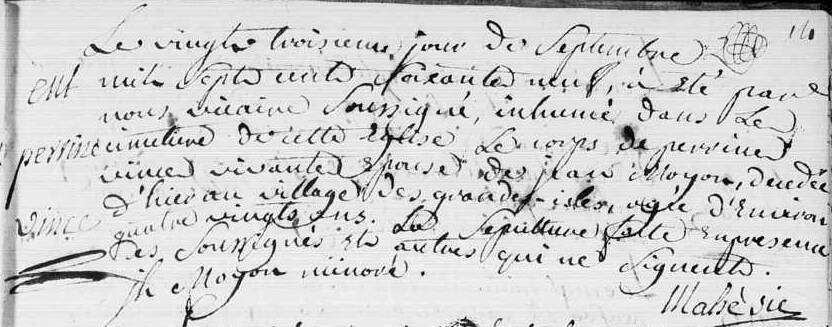 Le vingte troisieme jour de Septembre
Ent mil Septe cente Soixante neuf, à été par
nous vicaire Soussigné, inhumé dans Le
perrine cimetiere de cette Eglise Le corps de perrine
vince vivante Epouse de jean Moyon, decedée
d'hier au village des grandes isles, agée d'Environ
vince quatre vingts ans. La Sepulture faite En presence
des Soussignés Et autres qui ne Signente.
jh Moyon minoré.
Mahé vic